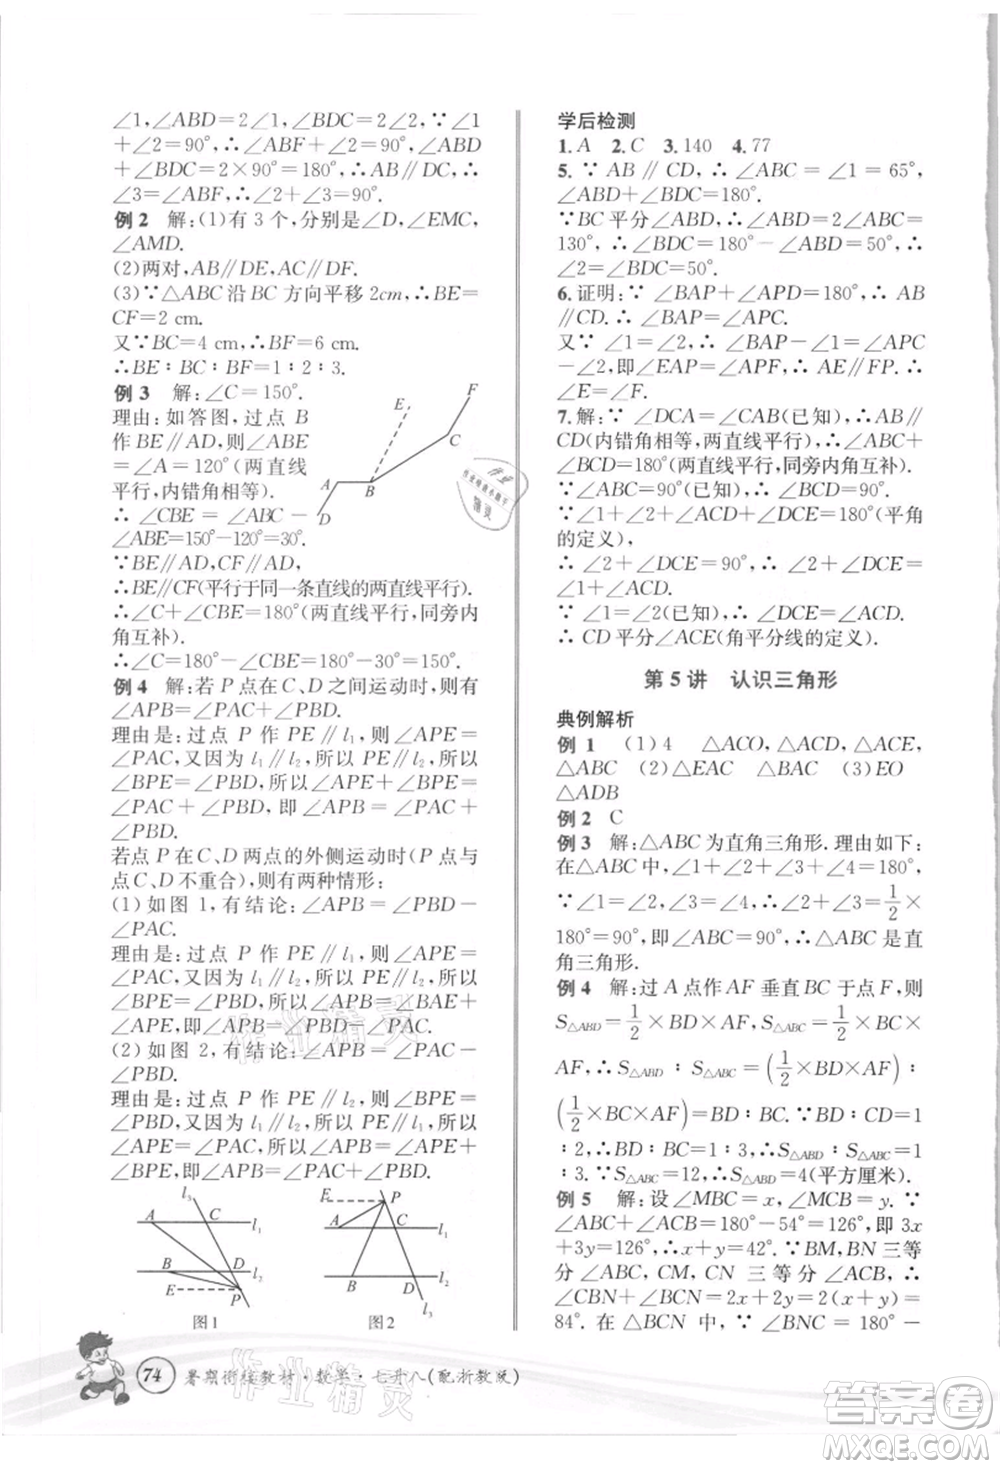 ∠1,∠ABD=2∠1,∠BDC=2∠2,∵∠1
+∠2=90°,∴∠ABF+∠2=90°,∠ABD+
∠BDC=2×90°=180°,∴AB∥CD,∴
∠3=∠ABF,∴∠2+∠3=90°.
例2 解:(1)有3个,分别是∠D,∠EMC,
∠AMD.
(2)两对,AB∥DE,AC∥DF.
(3)∵△ABC沿BC方向平移2cm,∴BE=
CF=2 cm.
又∵BC=4cm,∴BF=6 cm.
∴BE∶BC∶BF=1∶2∶3.
例3 解:∠C=150°.
理由:如答图,过点B
作BE∥AD,则∠ABE
=∠A=120°(两直线
平行,内错角相等).
∴∠CBE=∠ABC-
∠ABE=150°-120°=30°.
∵BE∥AD,CF∥AD,
∴BE∥CF(平行于同一条直线的两直线平行).
∴∠C+∠CBE=180°(两直线平行,同旁内
角互补).
∴∠C=180°-∠CBE=180°-30°=150°.
F
E
C
A
B
D
例4 解:若P点在C、D之间运动时,则有
∠APB=∠PAC+∠PBD.
理由是:过点P作PE∥l₁,则∠APE=
∠PAC,又因为l₁∥l₂,所以PE∥l₂,所以
∠BPE=∠PBD,所以∠APE+∠BPE=
∠PAC+∠PBD,即∠APB=∠PAC+
∠PBD.
若点P在C、D两点的外侧运动时(P点与
点C、D不重合),则有两种情形:
(1)如图1,有结论:∠APB=∠PBD-
∠PAC.
理由是:过点P作PE∥l₁,则∠APE=
∠PAC,又因为l₁∥l₂,所以PE∥l₂,所以
∠BPE=∠PBD,所以∠APB=∠BAE+
∠APE,即∠APB=∠PBD-∠PAC.
(2)如图2,有结论:∠APB=∠PAC-
∠PBD.
理由是:过点P作PE∥l₂,则∠BPE=
∠PBD,又因为l₁∥l₂,所以PE∥l₁,所以
∠APE=∠PAC,所以∠APB=∠APE+
∠BPE,即∠APB=∠PAC+∠PBD.
l₃
A
C
l₁
B
D
l₂
E
P
图1
E
P
A
C
l₁
B
D
l₂
l₃
图2
学后检测
1.A 2.C 3.140 4.77
5.∵AB∥CD,∴∠ABC=∠1=65°,
∠ABD+∠BDC=180°.
∵BC平分∠ABD,∴∠ABD=2∠ABC=
130°,∴∠BDC=180°-∠ABD=50°,∴
∠2=∠BDC=50°.
6.证明:∵∠BAP+∠APD=180°,∴AB
∥CD.∴∠BAP=∠APC.
又∵∠1=∠2,∴∠BAP-∠1=∠APC
-∠2,即∠EAP=∠APF,∴AE∥FP.∴
∠E=∠F.
7.解:∵∠DCA=∠CAB(已知),∴AB∥
CD(内错角相等,两直线平行),∴∠ABC+
∠BCD=180°(两直线平行,同旁内角互补).
∵∠ABC=90°(已知),∴∠BCD=90°.
∵∠1+∠2+∠ACD+∠DCE=180°(平角
的定义),∴∠2+∠DCE=90°.
∵∠2+∠ACD=∠BCD=90°,
∵∠1=∠2(已知),∴∠DCE=∠ACD.
∴CD平分∠ACE(角平分线的定义).
第5讲 认识三角形
典例解析
例1 (1)4 △ACO,△ACD,△ACE,
△ABC (2)△EAC △BAC (3)EO
△ADB
例2 C
例3 解:△ABC为直角三角形.理由如下:
在△ABC中,∠1+∠2+∠3+∠4=180°,
∵∠1=∠2,∠3=∠4,∴∠2+∠3=1/2×
180°=90°,即∠ABC=90°,∴△ABC是直
角三角形.
例4 解:过A点作AF垂直BC于点F,则
S△ABD=1/2×BD×AF,S△ABC=1/2×BC×
AF,∴S△ABD∶S△ABC=(1/2×BD×AF)∶
(1/2×BC×AF)=BD∶BC.∵BD∶CD=1
∶2,∴BD∶BC=1∶3,∴S△ABD∶S△ABC=1
∶3.∵S△ABC=12,∴S△ABD=4(平方厘米).
例5 解:设∠MBC=x,∠MCB=y.∵
∠ABC+∠ACB=180°-54°=126°,即3x
+3y=126°,∴x+y=42°.∵BM,BN三等
分∠ABC,CM,CN三等分∠ACB,∴
∠CBN+∠BCN=2x+2y=2(x+y)=
84°.∴∠BNC=180°-84°=96°.
74 暑期衔接教材·数学·七升八(配浙教版)
作业精灵
作业精灵
答案圈
MXQE.COM